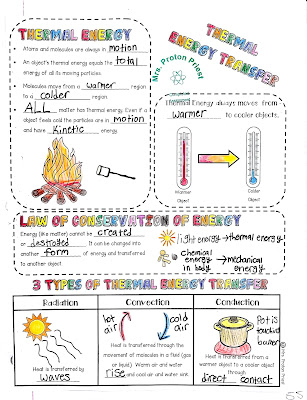 THERMAL ENERGY
Atoms and molecules are always in motion
An object's thermal energy equals the total
energy of all its moving particles.
Molecules move from a warmer region
to a colder region.
ALL matter has thermal energy. Even if a
object feels cold the particles are in motion
and have kinetic energy.
THERMAL
ENERGY TRANSFER
Mrs. Proton Priest
Thermal Energy always moves from
warmer to cooler objects.
Warmer
Object
Colder
Object
LAW OF CONSERVATION OF ENERGY
Energy (like matter) cannot be created
or destroyed. It can be changed into
another form of energy and transferred
to another object.
light energy → thermal energy
chemical energy in body → mechanical energy
3 TYPES OF THERMAL ENERGY TRANSFER
Radiation
Heat is transferred by
waves
Convection
hot air
cold air
Heat is transferred through the
movement of molecules in a fluid (gas
or liquid). Warm air and water
rise and cool air and water sink.
Conduction
Pot is
touching
burner
Heat is transferred from a
warmer object to a cooler object
through
direct contact
© Mrs. Proton Priest